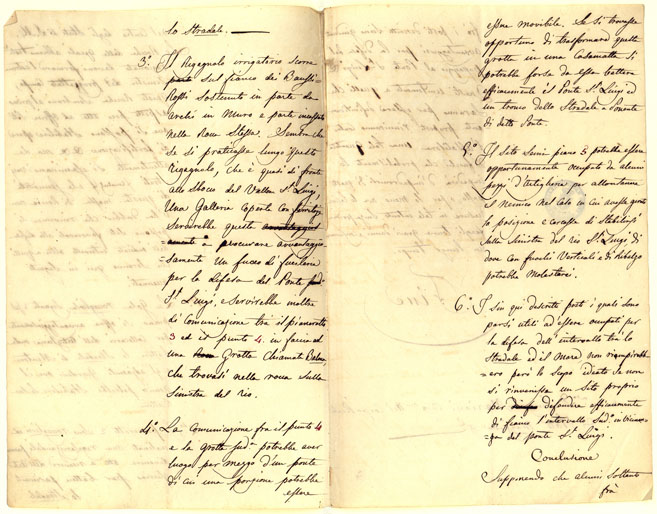 lo Stradale.
3.° Il Rigagnolo irrigatorio scorre
sul fianco dei Baussi
Rossi sostenuto in parte da
archi in Muro e parte incassato
nella Roca Stessa. Sembra che
se si praticasse lungo questo
Rigagnolo, che è quasi di fronte
allo sboco del Vallon St. Luigi
Una Galleria coperta con
Servirebbe questa
a procurare avvantaggio-
samente Un fuoco di fucileria
per la difesa del Ponte
St. Luigi, e servirebbe inoltre
di Comunicazione trà il pianorotto
3 ed il punto 4. in faccia ad
una Grotta chiamata
che trovasi nella roca sulla
Sinistra del rio.
4.° La Comunicazione frà il punto 4
e la grotta sud.a potrebbe aver
luogo per mezzo d'un ponte
di cui una porzione potrebbe
essere
essere movibile. Se si trovasse
opportuno di trasformare questa
grotta in una Casamatta si
potrebbe forse da essa battere
efficacemente il Ponte St. Luigi ed
un tronco dello Stradale a Ponente
di detto Ponte.
5.° Il Sito Semi piano 5 potrebbe essere
opportunamente occupato da alcuni
pezzi d'Artiglieria per allontanare
il nemico nel caso in cui avesse girato
la posizione e cercasse di Stabilirsi
sulla Sinistra del rio St. Luigi, di
dove con fuochi Verticali e di
potrebbe Molestarci.
6.° I sin qui descritti posti i quali sono
parsi utili ad essere occupati per
la difesa dell'intervallo trà lo
Stradale ed il Mare non riempirebb-
ero però lo Scopo ideato se non
si rinvenisse un Sito proprio
per difendere efficacemente
di fianco l'intervallo Sud.o in vicinan-
za del ponte St. Luigi.
Conclusione
Supponendo che alcuni
frà